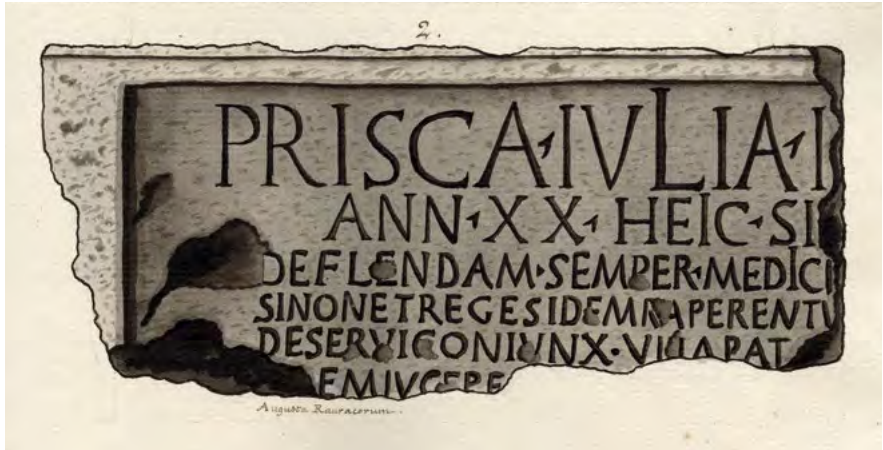 2.
PRISCA·IVLIA·I
ANN·XX·HEIC·SI
DEFLENDAM·SEMPER·MEDICI
SINONETREGESIDEMRAPERENTV
DESERVICONIVNX·VIVAPAT
EMIVGEPE
Augusta Rauracorum.